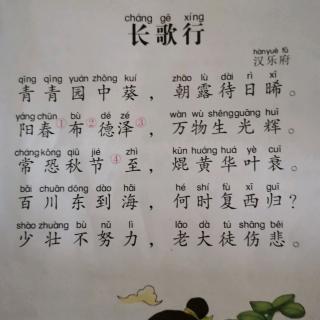 cháng gē xíng
长歌行
hànyuè fǔ
汉乐府
qīng qīng yuán zhōng kuí zhāo lù dài rì xī
青青园中葵，朝露待日晞。
yáng chūn bù dé zé wàn wù shēng guāng huī
阳春①布②德泽③，万物生光辉。
cháng kǒng qiū jié zhì kūn huáng huá yè
常恐秋节④至，焜黄华叶衰。
bǎi chuān dōng dào hǎi hé shí fù xī guī
百川东到海，何时复西归？
shào zhuàng bù nǔ lì lǎo dà tú shāng bēi
少壮不努力，老大徒伤悲。